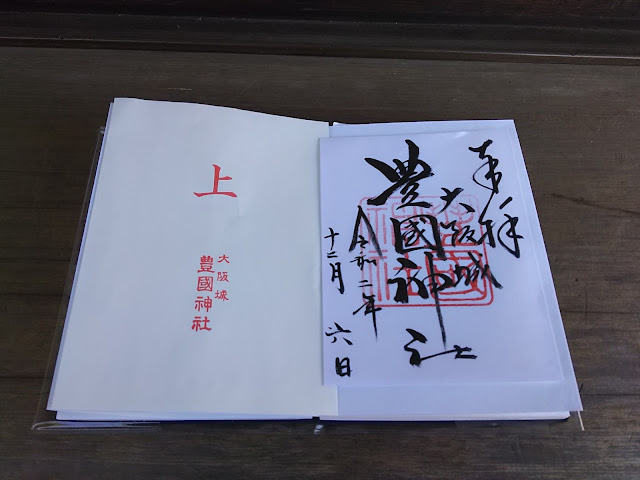 奉拝
大阪城
豊國神社
令和二年
十二月六日
上
大阪城
豊國神社